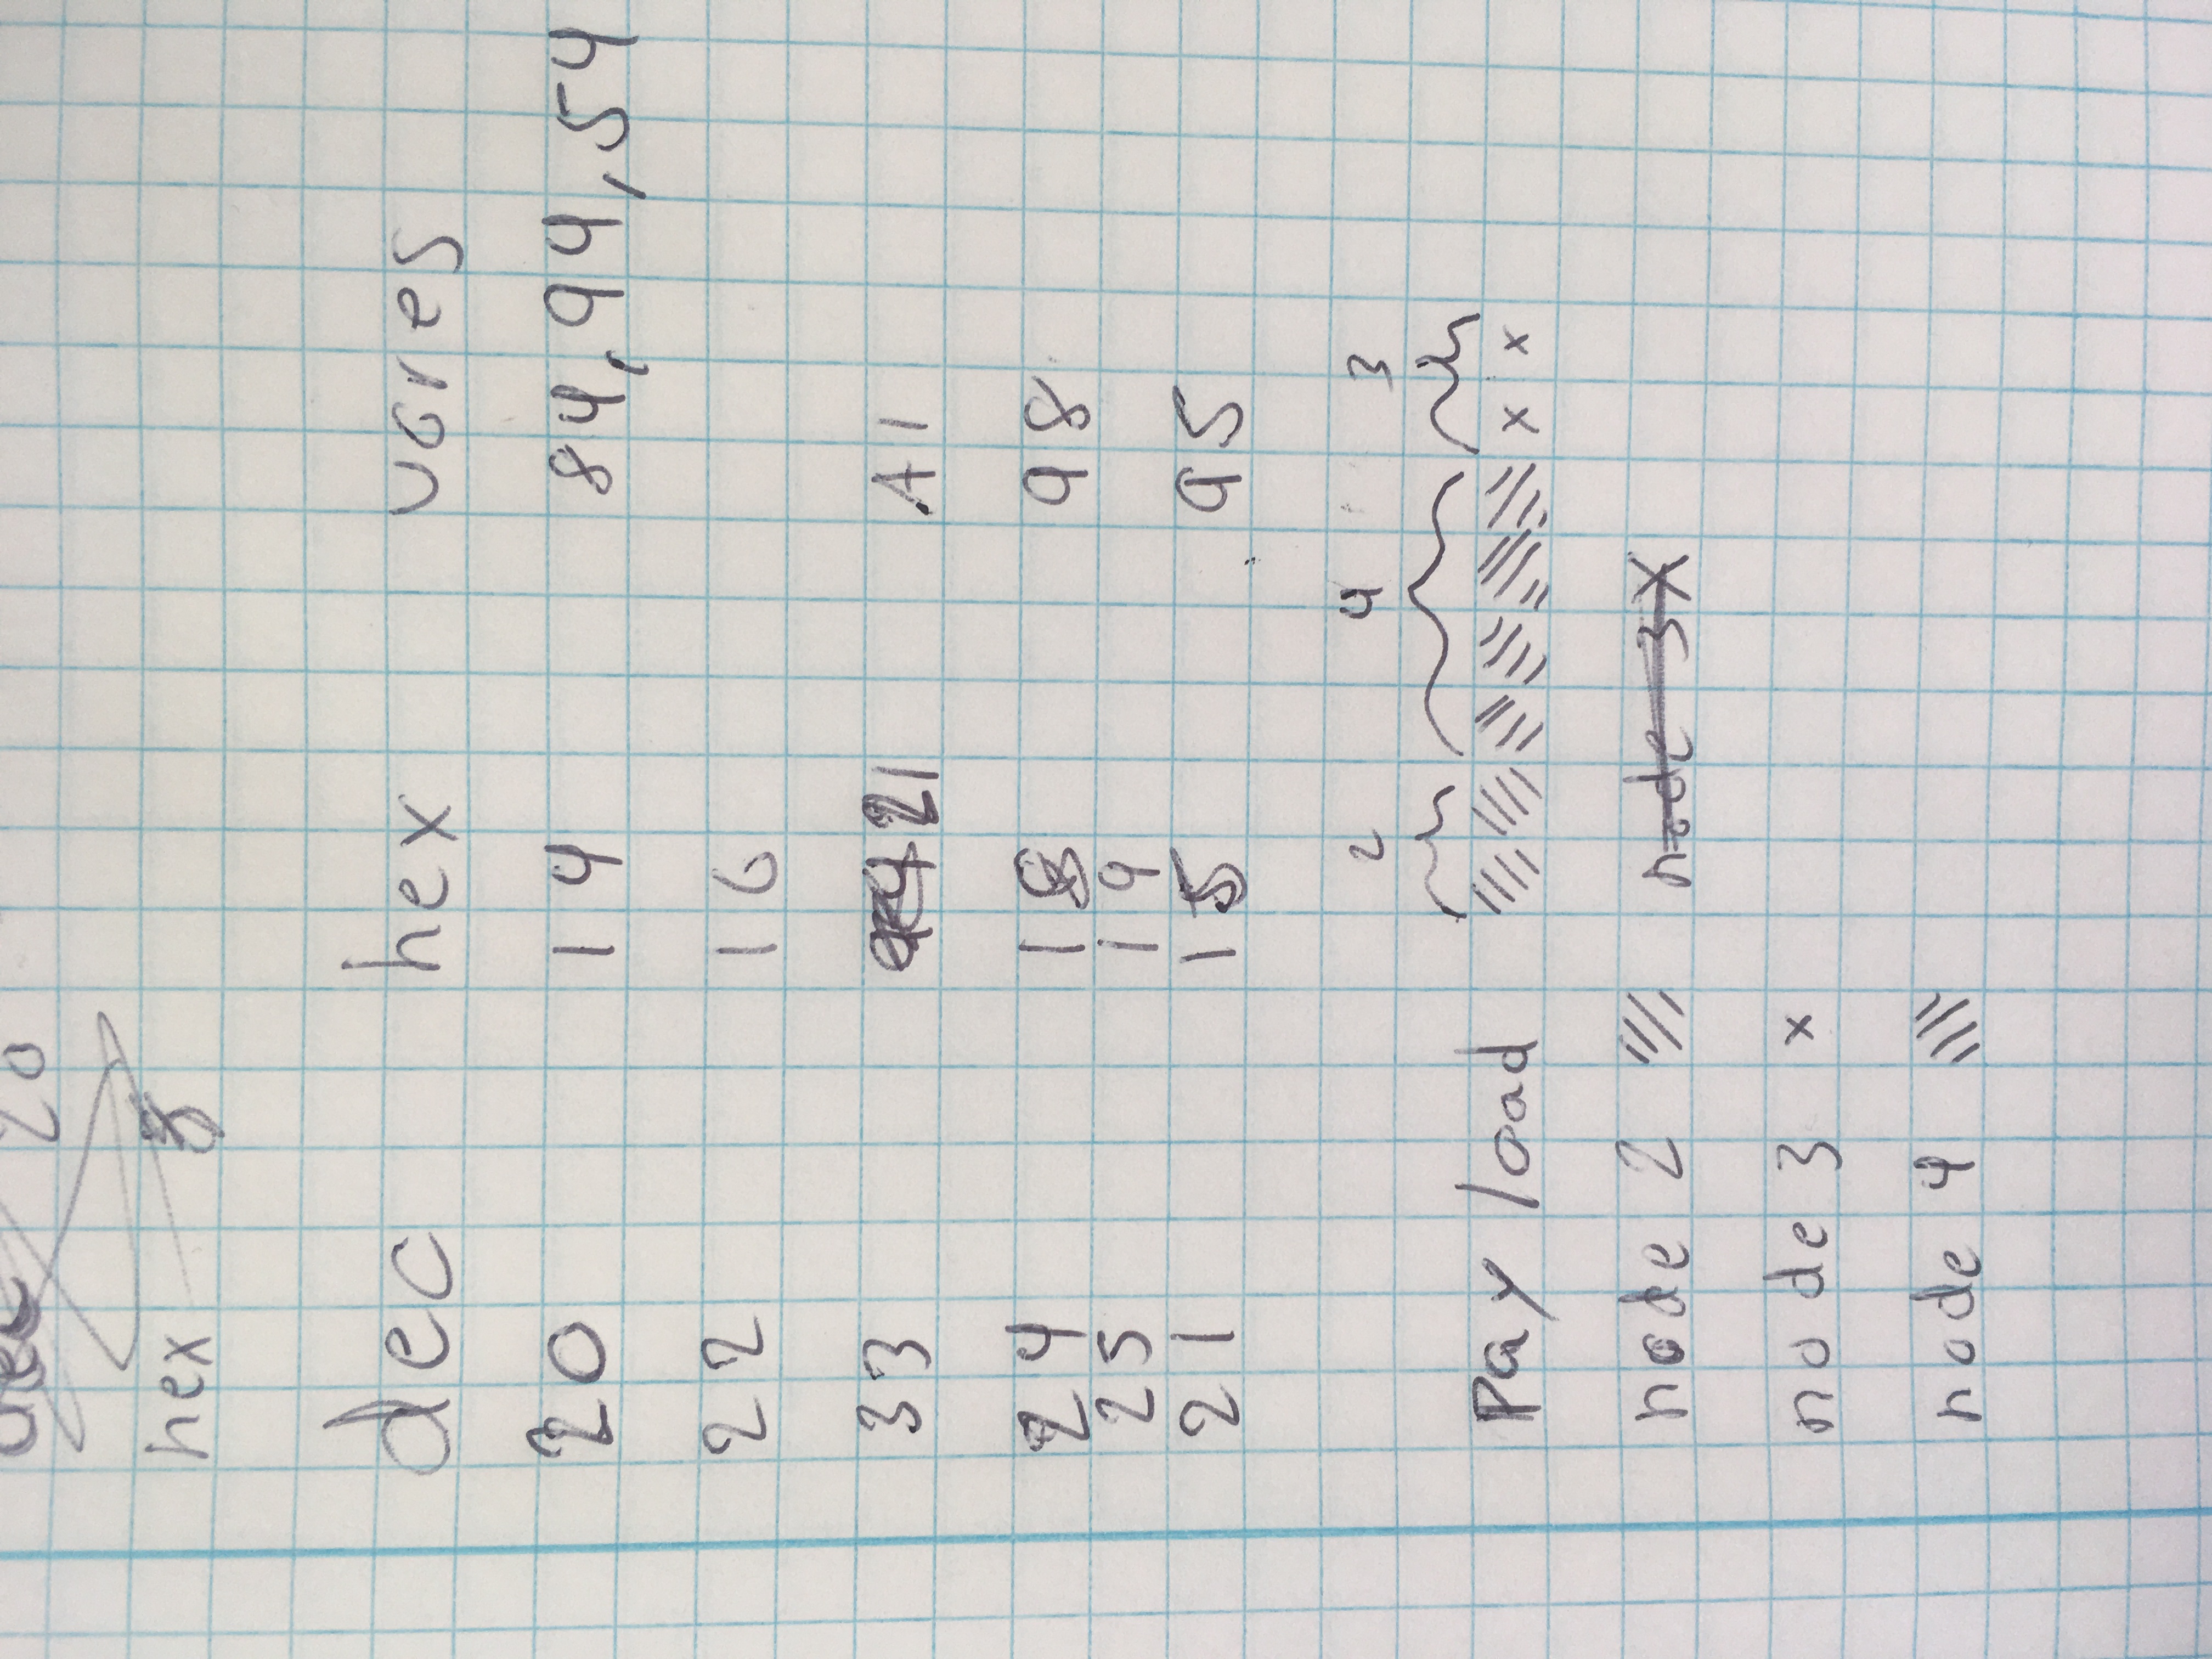 dec 20
hex
dec hex vares
20 14 84,94,54
22 16
33 21 A1
24 18 98
25 19
21 15 95
2 4 3
Pay load x x
node 2 node 3X
node 3 x
node 4